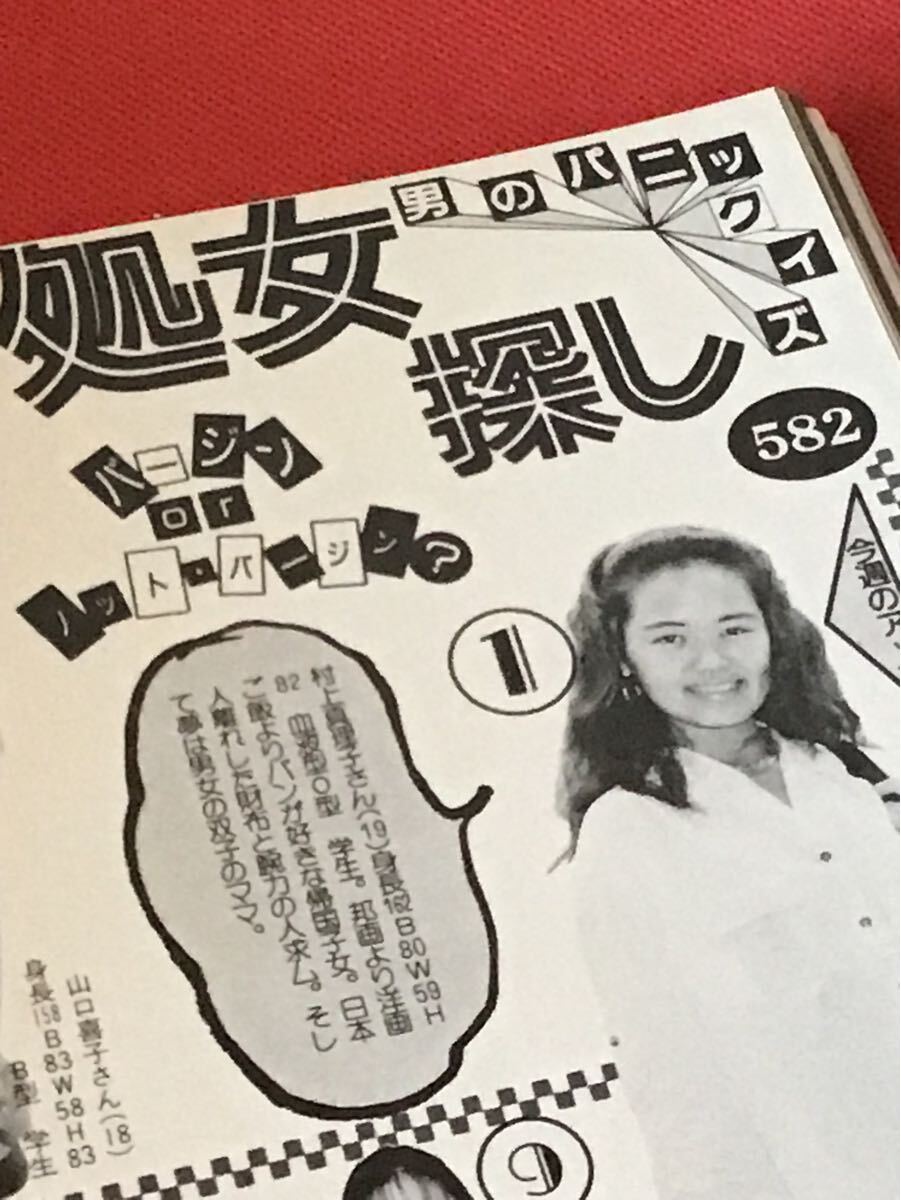 男のパニックイズ
処女
探し
582
バージン
or
ノット・バージン?
今週のア
1
村上真理子さん(19)身長162B80W59H
82 血液型O型 学生。邦画より洋画
ご飯よりパンが好きな帰国子女。日本
人離れした財布と魅力の人求ム。そし
て夢は男女の双子のママ。
山口喜子さん(18)
身長158B83W58H83
B型 学生
9